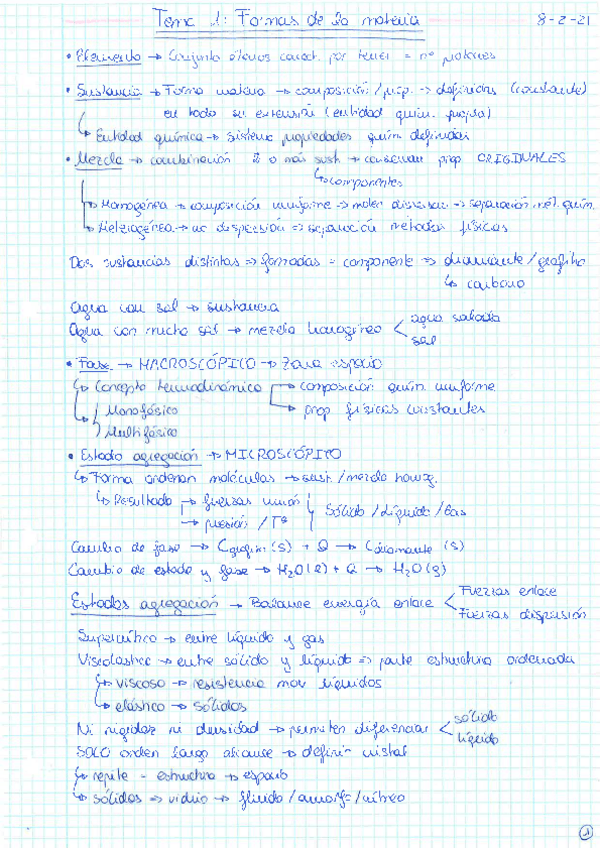 Tema 1: Formas de la materia 8-2-21
• Elemento → Conjunto átomos caract. por tener = nº protones
• Sustancia → Forma materia → composición / prop. → definidas (constante)
en toda su extensión (entidad quím. propia)
↳ Entidad química → sistema propiedades quím. definidas
• Mezcla → combinación 2 o más sust. → conservan prop ORIGINALES
↳ componentes
↳ Homogénea → composición uniforme → molec dispersas → separación mét. quím.
↳ Heterogénea → no dispersión → separación métodos físicos
Dos sustancias distintas → formadas = componente → diamante / grafito
↳ carbono
Agua con sal → sustancia
Agua con mucha sal → mezcla homogénea < agua salada
sal
• Fase → MACROSCÓPICO → Zona espacio
↳ Concepto termodinámico → composición quím. uniforme
↳ Monofásico → prop físicas constantes
Multifásico
• Estado agregación → MICROSCÓPICO
↳ Forma ordenan moléculas → sust. / mezcla homog.
↳ Resultado → fuerzas unión Sólido / Líquido / Gas
→ presión / Tª
Cambio de fase → Cgrafito (s) + Q → Cdiamante (s)
Cambio de estado y fase → H₂O (l) + Q → H₂O (g)
Estados agregación → Balance energía enlace < Fuerzas enlace
Fuerzas dispersión
Supercrítico → entre líquido y gas
Viscolastico → entre sólido y líquido → parte estructura ordenada
↳ viscoso → resistencia mov líquidos
↳ elástico → sólidos
Ni rigidez ni densidad → permiten diferenciar < sólido
líquido
SOLO orden largo alcance → definir cristal
↳ repite = estructura → espacio
↳ sólidos → vidrio → fluido / amorfo / vítreo
1